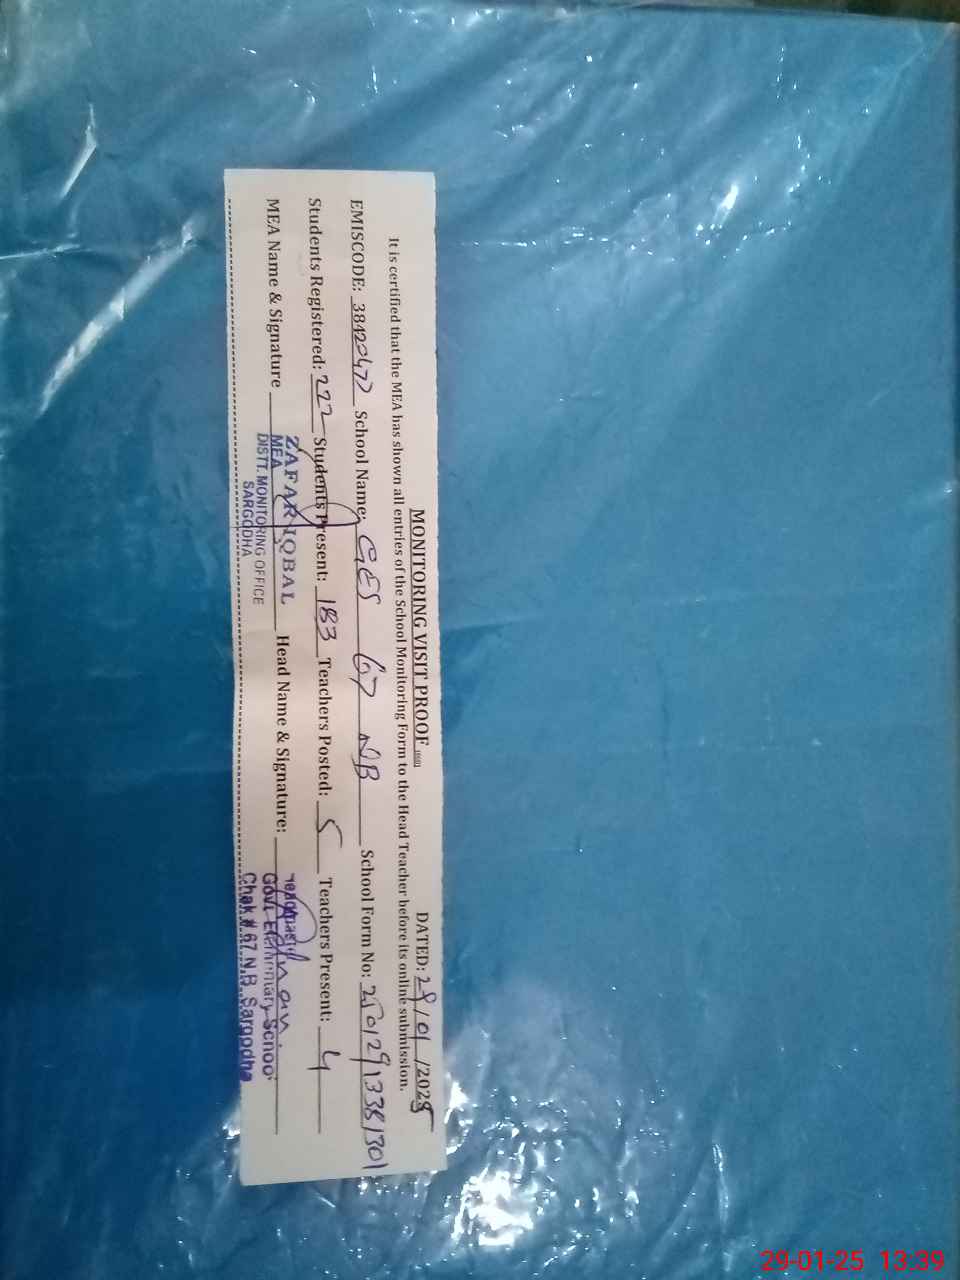 MONITORING VISIT PROOF
DATED: 29/01/2025
It is certified that the MEA has shown all entries of the School Monitoring Form to the Head Teacher before its online submission.
EMISCODE: 38420472 School Name: GES 67 NB School Form No: 25012913381301
Students Registered: 222 Students Present: 183 Teachers Posted: 5 Teachers Present: 4
MEA Name & Signature Head Name & Signature:
ZAFAR IQBAL
MEA
DISTT. MONITORING OFFICE
SARGODHA
Govt. Elementary School
Chak # 67 N.B. Sargodha
29-01-25 13:39